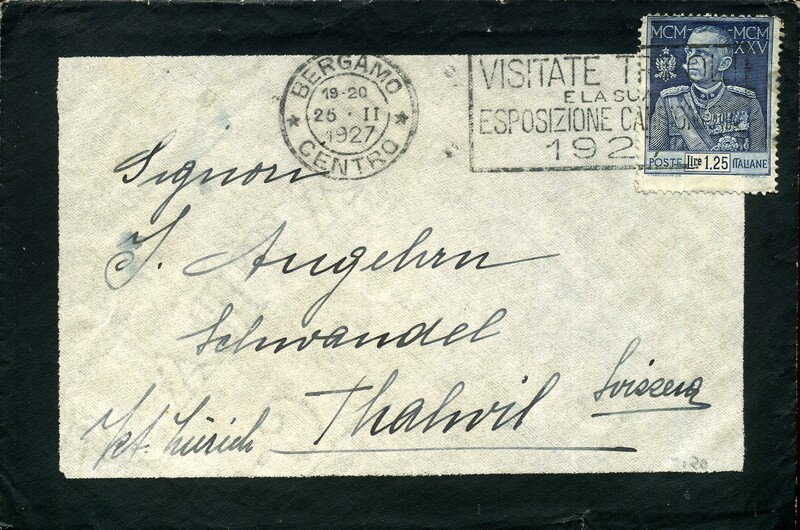 BERGAMO
19-20
25 · II
1927
★ CENTRO ★
VISITATE
E LA SUA
ESPOSIZIONE
192
MCM MCM
XXV
POSTE Lire 1.25 ITALIANE
Signor
J. Angehrn
Schwandel
Thalwil Svizzera
Kt. Zürich